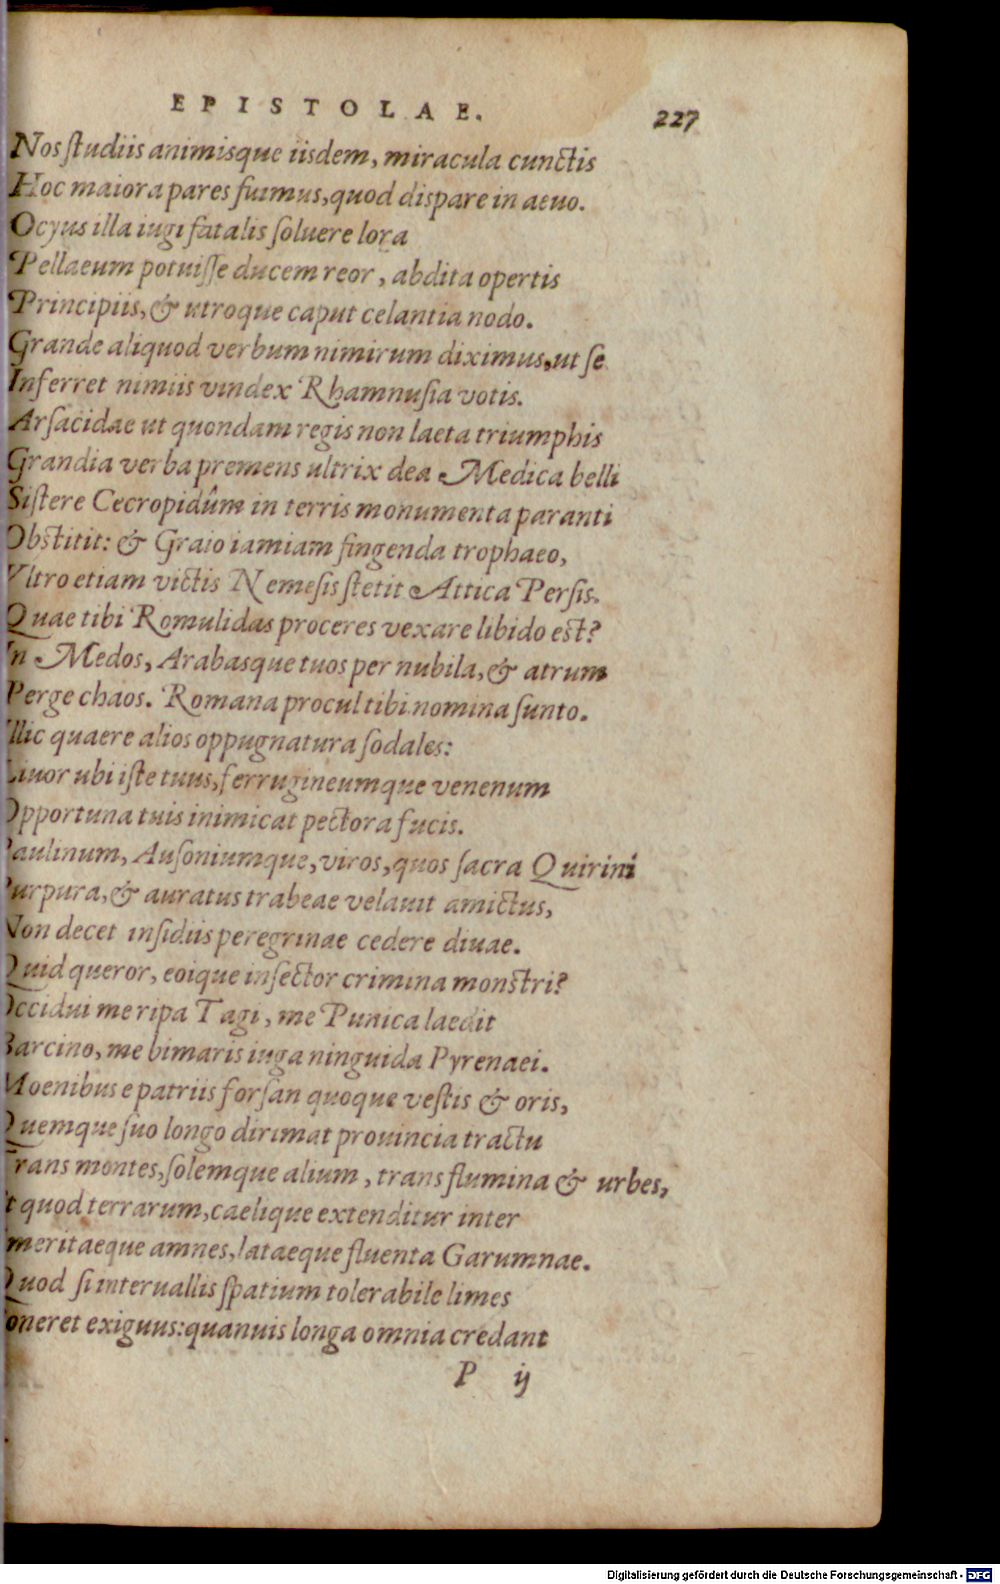 EPISTOLAE. 227
Nos ſtudiis animisque iisdem, miracula cunctis
Hoc maiora pares fuimus, quod dispare in aeuo.
Ocyus illa iugi fatalis ſoluere lora
Pellaeum potuiſſe ducem reor, abdita opertis
Principiis, & utroque caput celantia nodo.
Grande aliquod verbum nimirum diximus, ut ſe
Inferret nimiis vindex Rhamnuſia votis.
Arſacidae ut quondam regis non laeta triumphis
Grandia verba premens ultrix dea Medica belli
Siſtere Cecropidûm in terris monumenta paranti
Obſtitit: & Graio iamiam fingenda trophaeo,
Vltro etiam victis Nemeſis ſtetit Attica Perſis.
Quae tibi Romulidas proceres vexare libido eſt?
In Medos, Arabasque tuos per nubila, & atrum
Perge chaos. Romana procul tibi nomina ſunto.
Illic quaere alios oppugnatura ſodales:
Liuor ubi iſte tuus, ferrugineumque venenum
Opportuna tuis inimicat pectora fucis.
Paulinum, Auſoniumque, viros, quos ſacra Quirini
Purpura, & auratus trabeae velauit amictus,
Non decet inſidiis peregrinae cedere diuae.
Quid queror, eoique inſector crimina monſtri?
Occidui me ripa Tagi, me Punica laedit
Barcino, me bimaris iuga ninguida Pyrenaei.
Moenibus e patriis forſan quoque veſtis & oris,
Quemque ſuo longo dirimat prouincia tractu
Trans montes, ſolemque alium, trans flumina & urbes,
Et quod terrarum, caelique extenditur inter
Emeritaeque amnes, lataeque fluenta Garumnae.
Quod ſi interuallis ſpatium tolerabile limes
Poneret exiguus: quanuis longa omnia credant
P ij
Digitalisierung gefördert durch die Deutsche Forschungsgemeinschaft - DFG